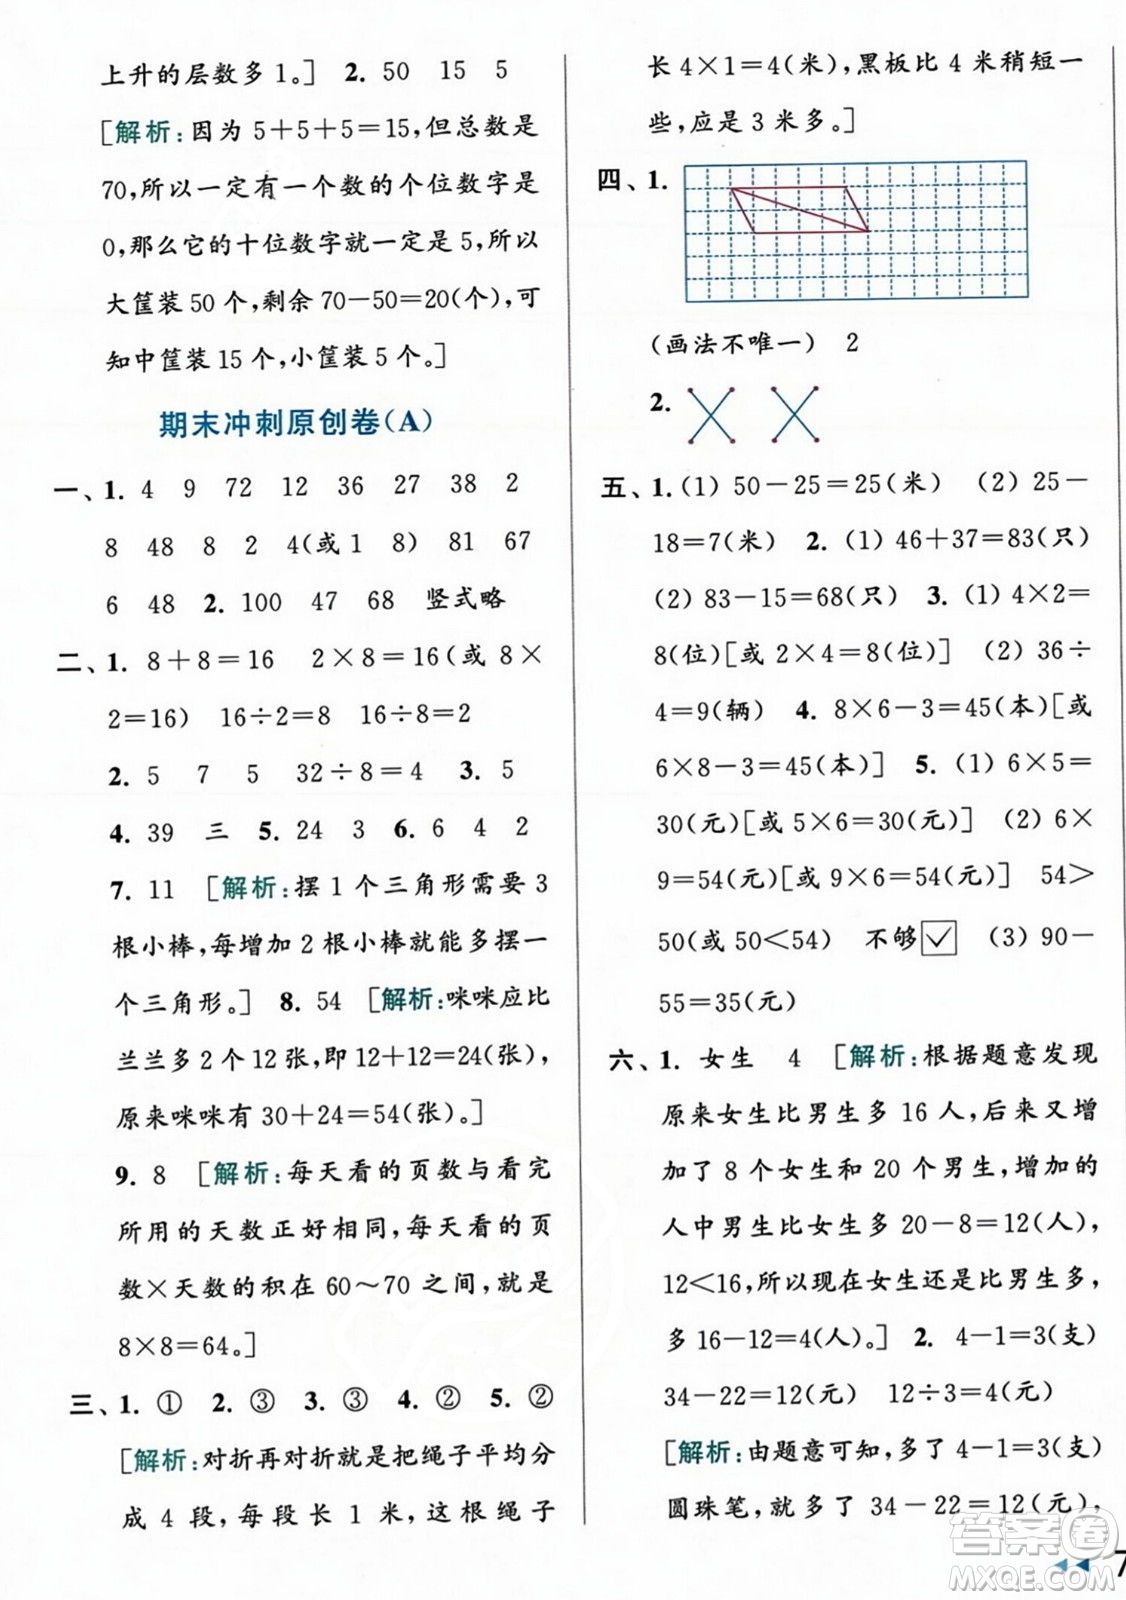 上升的层数多1。] 2. 50 15 5
[解析:因为5+5+5=15,但总数是
70,所以一定有一个数的个位数字是
0,那么它的十位数字就一定是5,所以
大筐装50个,剩余70-50=20(个),可
知中筐装15个,小筐装5个。]
期末冲刺原创卷(A)
一、1. 4 9 72 12 36 27 38 2
8 48 8 2 4(或1 8) 81 67
6 48 2. 100 47 68 竖式略
二、1. 8+8=16 2×8=16(或8×
2=16) 16÷2=8 16÷8=2
2. 5 7 5 32÷8=4 3. 5
4. 39 三 5. 24 3 6. 6 4 2
7. 11 [解析:摆1个三角形需要3
根小棒,每增加2根小棒就能多摆一
个三角形。] 8. 54 [解析:咪咪应比
兰兰多2个12张,即12+12=24(张),
原来咪咪有30+24=54(张)。]
9. 8 [解析:每天看的页数与看完
所用的天数正好相同,每天看的页
数×天数的积在60~70之间,就是
8×8=64。]
三、1. ① 2. ③ 3. ③ 4. ② 5. ②
[解析:对折再对折就是把绳子平均分
成4段,每段长1米,这根绳子
长4×1=4(米),黑板比4米稍短一
些,应是3米多。]
四、1.
(画法不唯一) 2
2.
五、1.(1) 50-25=25(米) (2) 25-
18=7(米) 2. (1) 46+37=83(只)
(2) 83-15=68(只) 3. (1) 4×2=
8(位)[或2×4=8(位)] (2) 36÷
4=9(辆) 4. 8×6-3=45(本)[或
6×8-3=45(本)] 5. (1) 6×5=
30(元)[或5×6=30(元)] (2) 6×
9=54(元)[或9×6=54(元)] 54>
50(或50<54) 不够☑ (3) 90-
55=35(元)
六、1. 女生 4 [解析:根据题意发现
原来女生比男生多16人,后来又增
加了8个女生和20个男生,增加的
人中男生比女生多20-8=12(人),
12<16,所以现在女生还是比男生多,
多16-12=4(人)。] 2. 4-1=3(支)
34-22=12(元) 12÷3=4(元)
[解析:由题意可知,多了4-1=3(支)
圆珠笔,就多了34-22=12(元),
答案卷
MXQE.COM
7